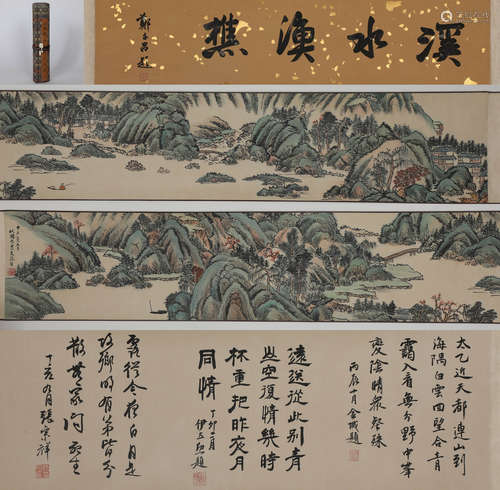 溪水漁樵
鄭午昌題
太乙近天都連山到
海隅白雲四望合青
靄入看無分野中峯
變陰晴眾壑殊
丙辰十月金城題
遠送從此別青
山空復情幾時
杯重把昨夜月
同情
丁卯二月
伊立勳題
露從今夜白月是
故鄉明有弟皆分
散無家問死生
丁亥九月張宗祥